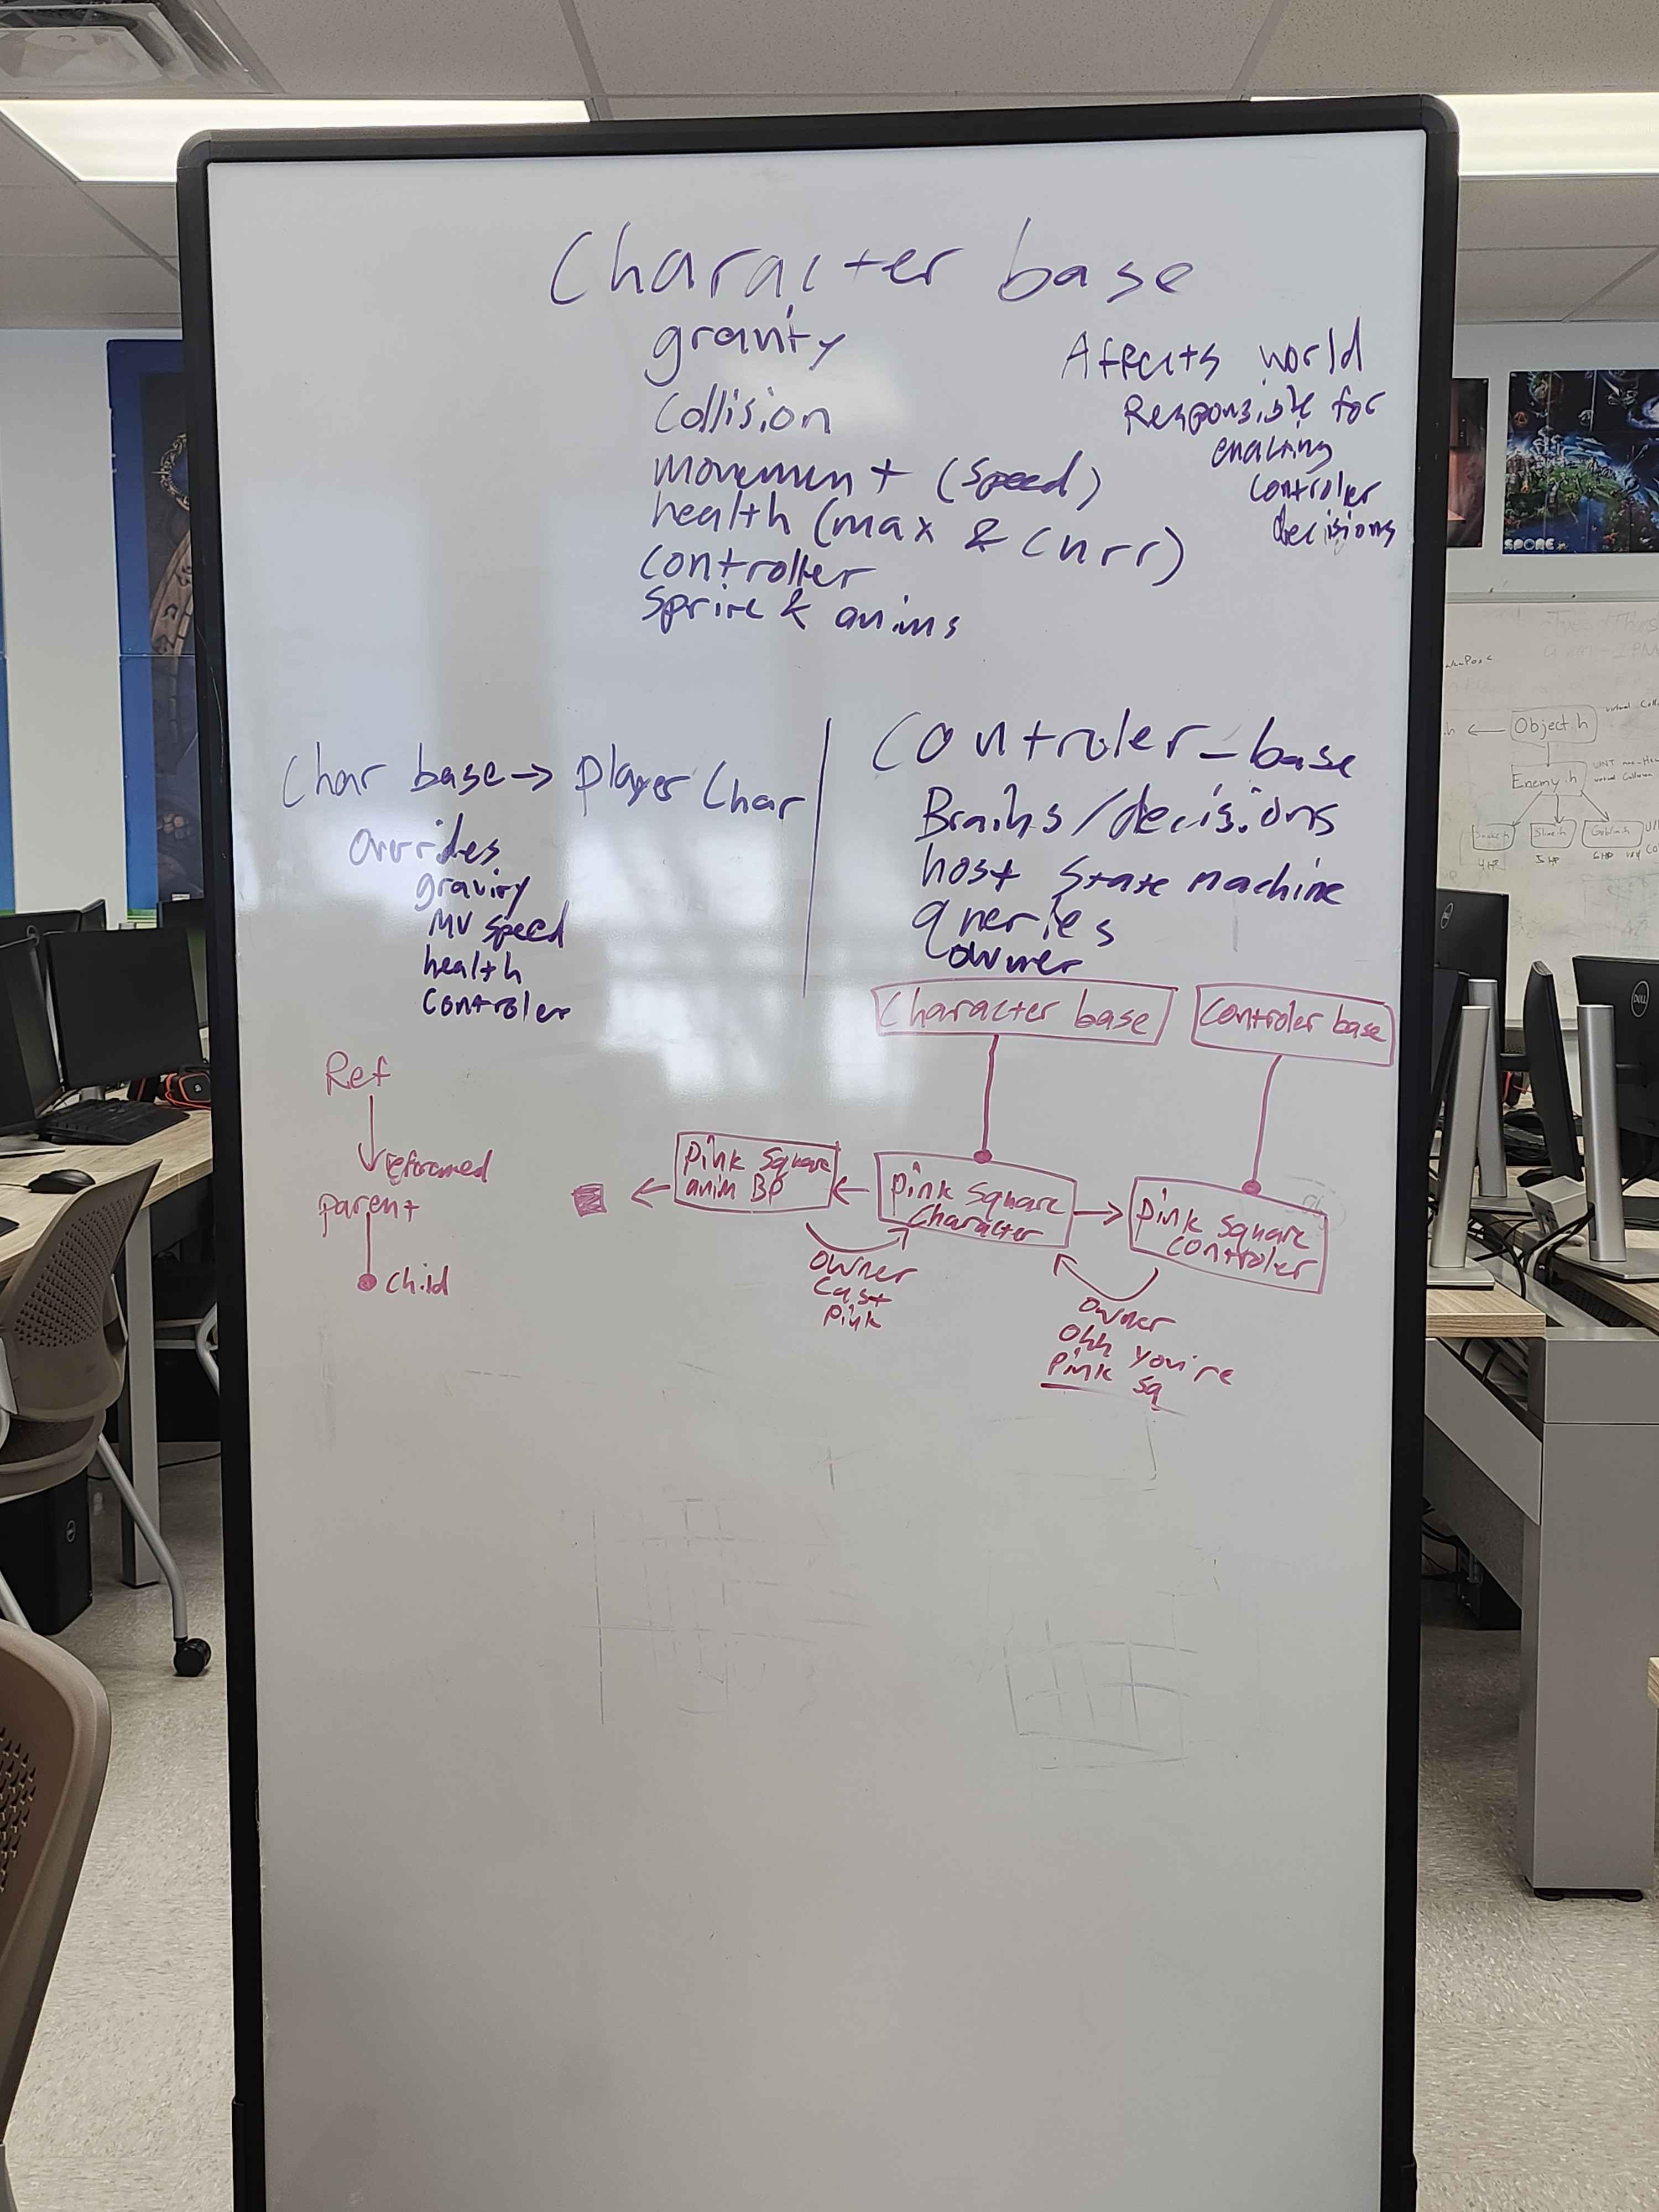 Character base
gravity
Collision
movement (speed)
health (max & curr)
controller
Sprite & anims
Affects world
Responsible for
enacting
controler
decisions
Char base → Player Char
Overrides
gravity
MV speed
health
Controler
Controler_base
Brains/decisions
host state machine
queries
owner
Character base
Controler base
Ref
parent
child
Pink Square
anim BP
Pink Square
Character
Pink Square
Controler
Owner
Cast
Pink
Owner
Ohh you're
Pink Sq
SPORE
Object.h
Enemy.h
Slime.h
Goblin.h
4 HP
5 HP
6 HP
DELL